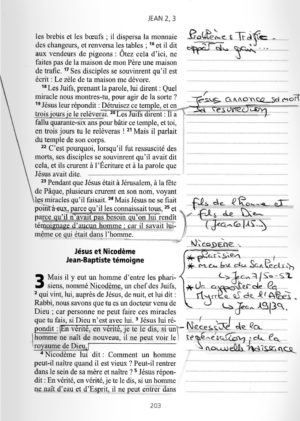 JEAN 2, 3
les brebis et les bœufs ; il dispersa la monnaie
des changeurs, et renversa les tables ; 16 et il dit
aux vendeurs de pigeons : Ôtez cela d'ici, ne
faites pas de la maison de mon Père une maison
de trafic. 17 Ses disciples se souvinrent qu'il est
écrit : Le zèle de ta maison me dévore.
18 Les Juifs, prenant la parole, lui dirent : Quel
miracle nous montres-tu, pour agir de la sorte ?
19 Jésus leur répondit : Détruisez ce temple, et en
trois jours je le relèverai. 20 Les Juifs dirent : Il a
fallu quarante-six ans pour bâtir ce temple, et toi,
en trois jours tu le relèveras ! 21 Mais il parlait
du temple de son corps.
22 C'est pourquoi, lorsqu'il fut ressuscité des
morts, ses disciples se souvinrent qu'il avait dit
cela, et ils crurent à l'Écriture et à la parole que
Jésus avait dite.
23 Pendant que Jésus était à Jérusalem, à la fête
de Pâque, plusieurs crurent en son nom, voyant
les miracles qu'il faisait. 24 Mais Jésus ne se fiait
point à eux, parce qu'il les connaissait tous, 25 et
parce qu'il n'avait pas besoin qu'on lui rendît
témoignage d'aucun homme ; car il savait lui-
même ce qui était dans l'homme.
Jésus et Nicodème
Jean-Baptiste témoigne
3 Mais il y eut un homme d'entre les phari-
siens, nommé Nicodème, un chef des Juifs,
2 qui vint, lui, auprès de Jésus, de nuit, et lui dit :
Rabbi, nous savons que tu es un docteur venu de
Dieu ; car personne ne peut faire ces miracles
que tu fais, si Dieu n'est avec lui. 3 Jésus lui ré-
pondit : En vérité, en vérité, je te le dis, si un
homme ne naît de nouveau, il ne peut voir le
royaume de Dieu.
4 Nicodème lui dit : Comment un homme
peut-il naître quand il est vieux ? Peut-il rentrer
dans le sein de sa mère et naître ? 5 Jésus répon-
dit : En vérité, en vérité, je te le dis, si un homme
ne naît d'eau et d'Esprit, il ne peut entrer dans
203
Problème : Trafic
appât du gain...
Jésus annonce sa mort
sa résurrection
fils de l'homme et
fils de Dieu
(Jean 6/15...)
Nicodème :
* pharisien
* membre du Sanhédrin
Jean 7/50-52
* Un apporteur de la
Myrrhe et de l'Aloès.
Jean 19/39.
Nécessité de la
régénération ; de la
nouvelle naissance